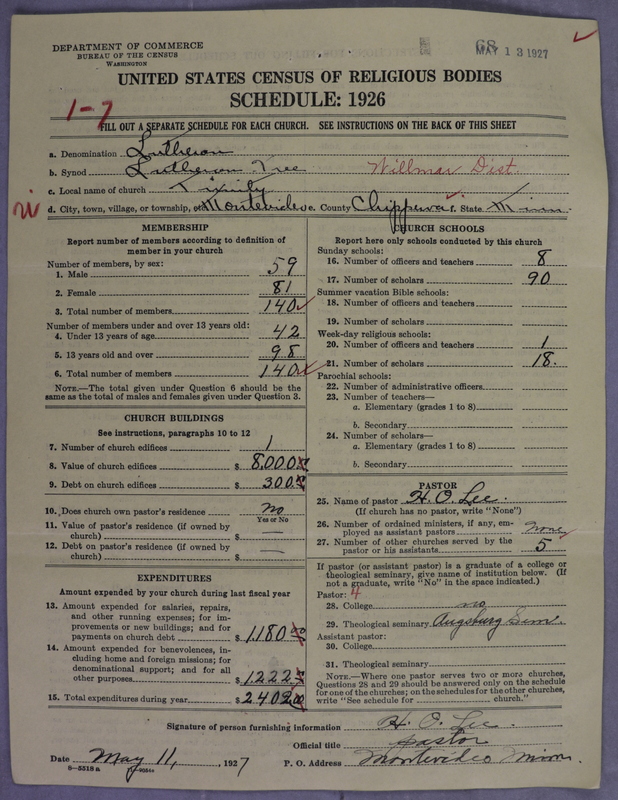 DEPARTMENT OF COMMERCE
BUREAU OF THE CENSUS
WASHINGTON
68
MAY 13 1927
UNITED STATES CENSUS OF RELIGIOUS BODIES
SCHEDULE: 1926
1-7
FILL OUT A SEPARATE SCHEDULE FOR EACH CHURCH. SEE INSTRUCTIONS ON THE BACK OF THIS SHEET
a. Denomination Lutheran
b. Synod Lutheran Free Willmar Dist.
c. Local name of church Trinity
d. City, town, village, or township, or Montevideo e. County Chippewa f. State Minn.
MEMBERSHIP
Report number of members according to definition of
member in your church
Number of members, by sex:
1. Male 59
2. Female 81
3. Total number of members 140
Number of members under and over 13 years old:
4. Under 13 years of age 42
5. 13 years old and over 98
6. Total number of members 140
NOTE.—The total given under Question 6 should be the
same as the total of males and females given under Question 3.
CHURCH BUILDINGS
See instructions, paragraphs 10 to 12
7. Number of church edifices 1
8. Value of church edifices $ 8,000
9. Debt on church edifices $ 300
10. Does church own pastor's residence no
Yes or No
11. Value of pastor's residence (if owned by
church) $ —
12. Debt on pastor's residence (if owned by
church) $ —
EXPENDITURES
Amount expended by your church during last fiscal year
13. Amount expended for salaries, repairs,
and other running expenses; for im-
provements or new buildings; and for
payments on church debt $ 1,180.00
14. Amount expended for benevolences, in-
cluding home and foreign missions; for
denominational support; and for all
other purposes $ 1222
15. Total expenditures during year $ 2402.00
CHURCH SCHOOLS
Report here only schools conducted by this church
Sunday schools:
16. Number of officers and teachers 8
17. Number of scholars 90
Summer vacation Bible schools:
18. Number of officers and teachers
19. Number of scholars
Week-day religious schools:
20. Number of officers and teachers 1
21. Number of scholars 18.
Parochial schools:
22. Number of administrative officers
23. Number of teachers—
a. Elementary (grades 1 to 8)
b. Secondary
24. Number of scholars—
a. Elementary (grades 1 to 8)
b. Secondary
PASTOR
25. Name of pastor H. O. Lee.
(If church has no pastor, write "None")
26. Number of ordained ministers, if any, em-
ployed as assistant pastors none
27. Number of other churches served by the
pastor or his assistants 5
If pastor (or assistant pastor) is a graduate of a college or
theological seminary, give name of institution below. (If
not a graduate, write "No" in the space indicated.)
Pastor: 4
28. College no
29. Theological seminary Augsburg Sem.
Assistant pastor:
30. College
31. Theological seminary
NOTE.—Where one pastor serves two or more churches,
Questions 28 and 29 should be answered only on the schedule
for one of the churches; on the schedules for the other churches,
write "See schedule for church."
Signature of person furnishing information H. O. Lee.
Official title pastor
Date May 11, 1927 P. O. Address Montevideo Minn.
8—5518 a